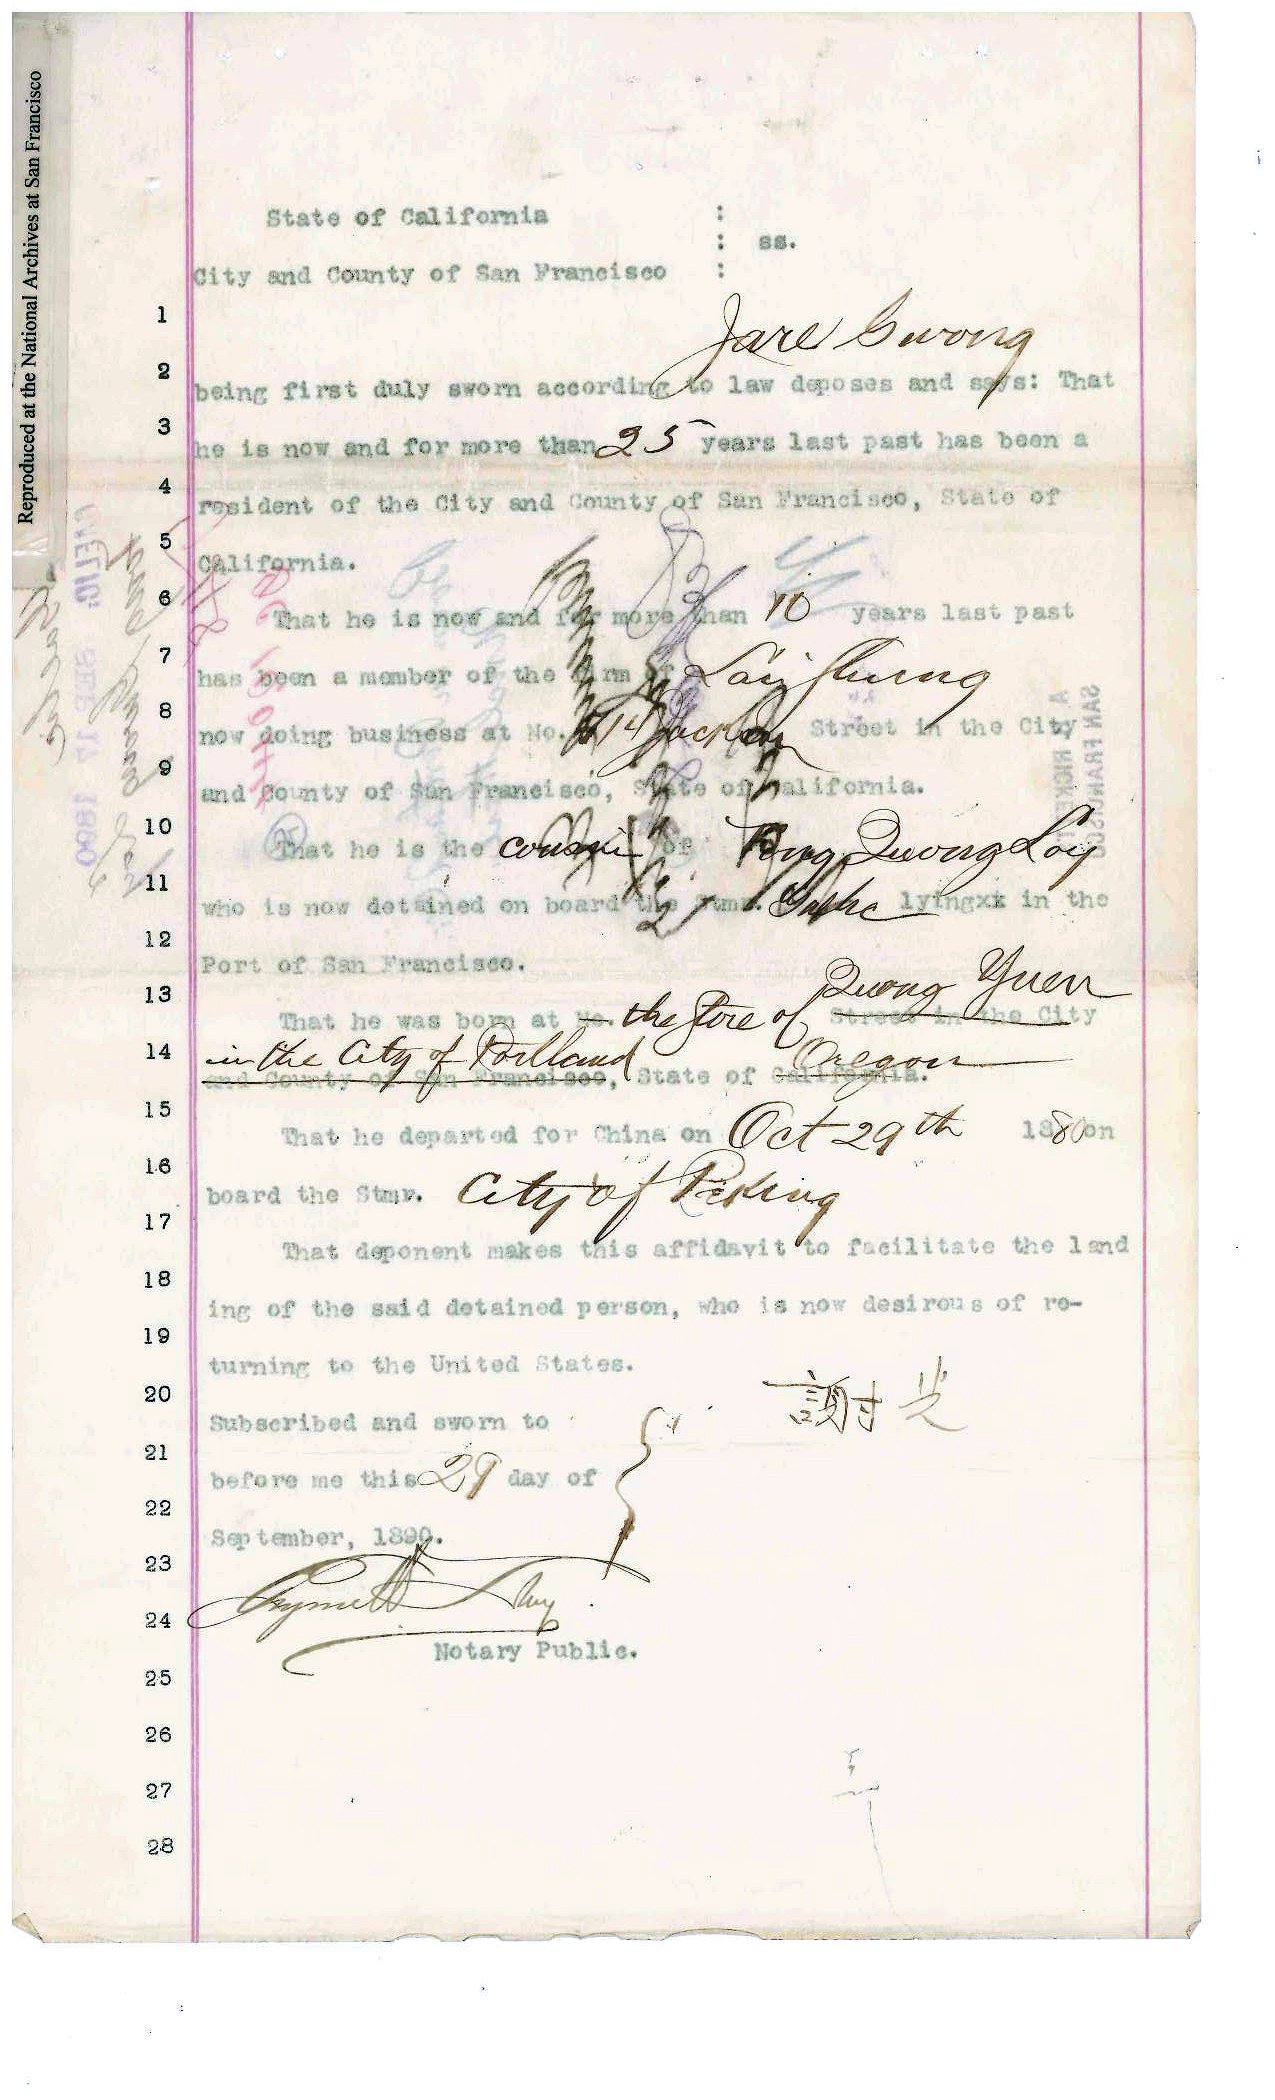 Reproduced at the National Archives at San Francisco
State of California :
: ss.
City and County of San Francisco :
1
Jare Gwong
2
being first duly sworn according to law deposes and says: That
3
he is now and for more than 25 years last past has been a
4
resident of the City and County of San Francisco, State of
5
California.
6
That he is now and for more than 10 years last past
7
has been a member of the firm of Lai Shung
8
now doing business at No. Jackson Street in the City
9
and County of San Francisco, State of California.
10
That he is the cousin of Quong Loy
11
who is now detained on board the Stmr. lyingxx in the
12
Port of San Francisco.
13
Quong Yuen
That he was born at No. the store of Street in the City
14
in the City of Portland Oregon
and County of San Francisco, State of California.
15
That he departed for China on Oct 29th 1880 on
16
board the Stmr. City of Peking
17
That deponent makes this affidavit to facilitate the land
18
ing of the said detained person, who is now desirous of re-
19
turning to the United States.
20
謝光
Subscribed and sworn to
21
before me this 29 day of
22
September, 1890.
23
24
Notary Public.
25
26
27
28